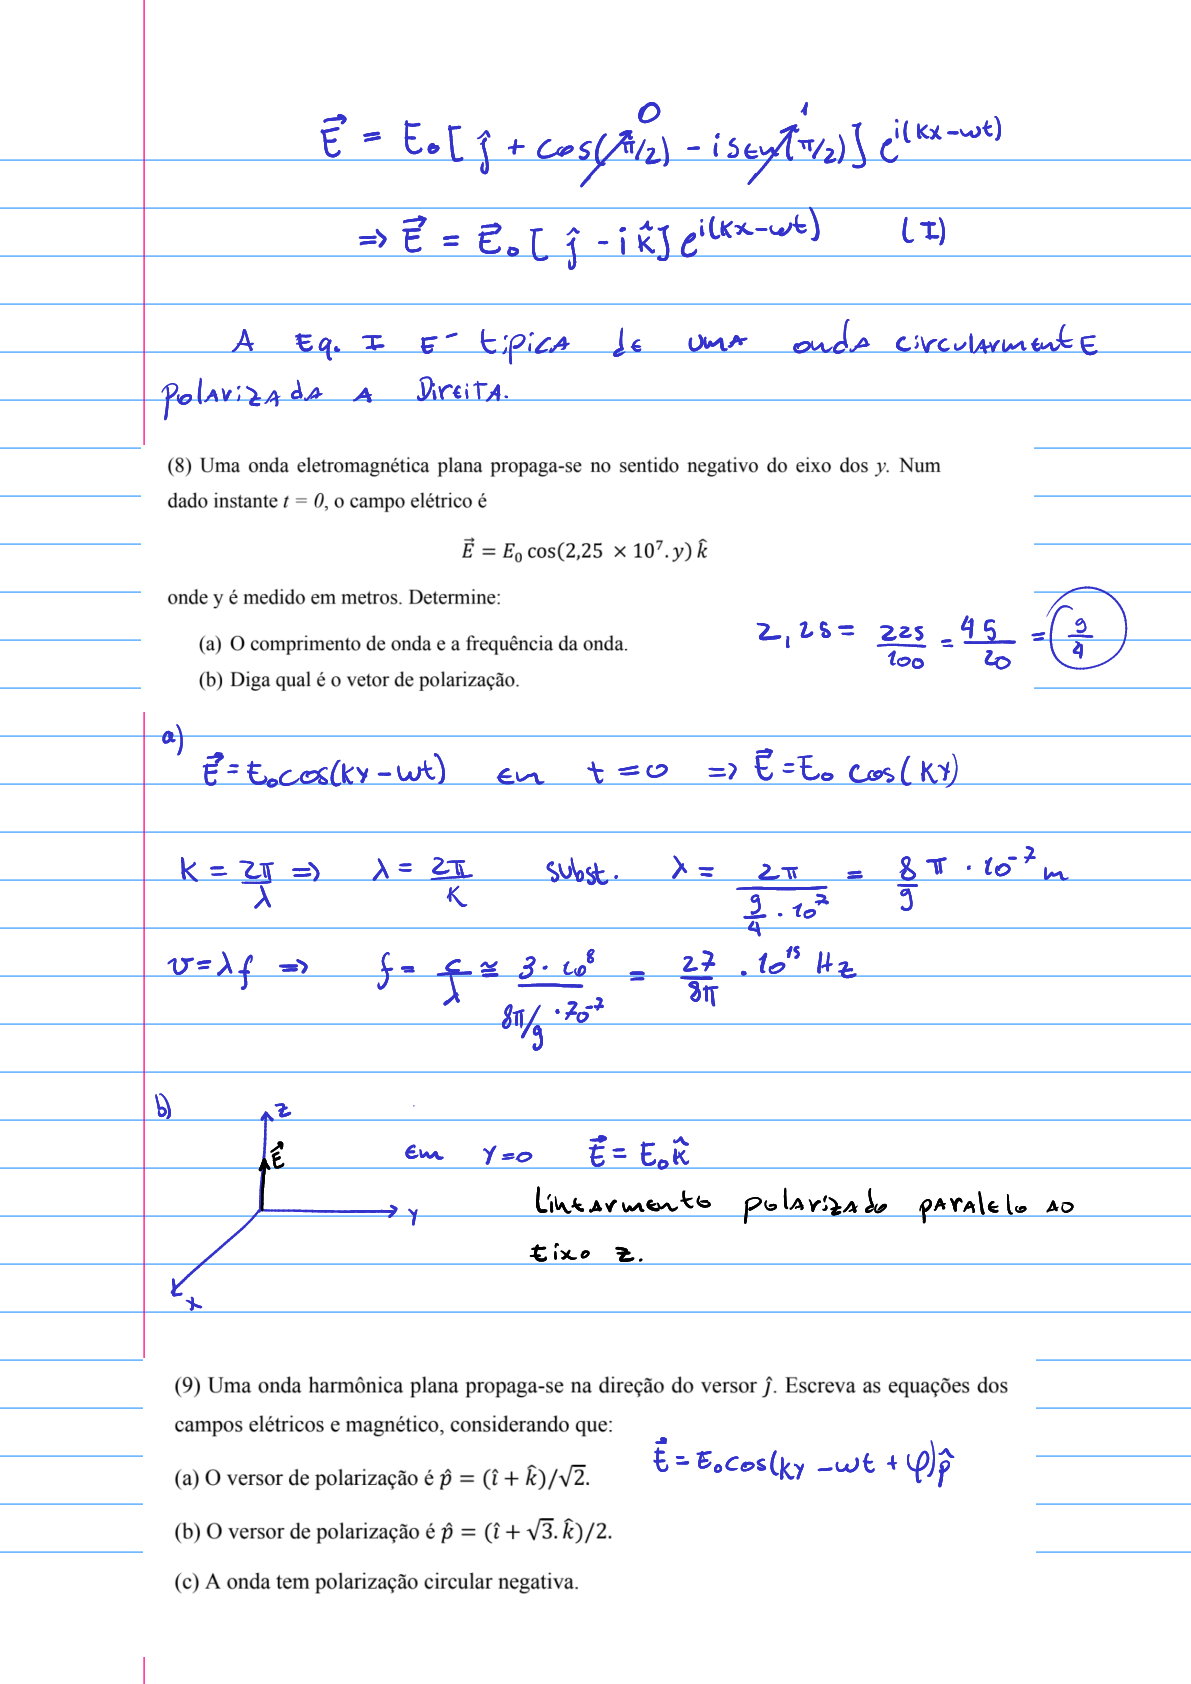 E⃗ = E₀[ ĵ + cos(π/2) - i sen(π/2)] e^{i(kx-wt)}
0 1
⇒ E⃗ = E⃗₀[ ĵ - i k̂] e^{i(kx-wt)} (I)
A Eq. I E- tipica de uma onda circularmente
polarizada a Direita.
(8) Uma onda eletromagnética plana propaga-se no sentido negativo do eixo dos y. Num
dado instante t = 0, o campo elétrico é
E⃗ = E₀ cos(2,25 × 10⁷. y) k̂
onde y é medido em metros. Determine:
(a) O comprimento de onda e a frequência da onda.
2,25 = 225/100 = 45/20 = 9/4
(b) Diga qual é o vetor de polarização.
a)
E⃗ = E₀cos(ky - wt) em t = 0 ⇒ E⃗ = E₀ cos( ky)
k = 2π/λ ⇒ λ = 2π/k subst. λ = 2π/(9/4 · 10⁷) = 8/9 π · 10⁻⁷ m
v = λf ⇒ f = c/λ ≅ 3 · 10⁸/(8π/9 · 10⁻⁷) = 27/8π · 10¹⁵ Hz
b)
z
E⃗
y
x
em y = 0 E⃗ = E₀k̂
linearmento polarizado paralelo ao
eixo z.
(9) Uma onda harmônica plana propaga-se na direção do versor ĵ. Escreva as equações dos
campos elétricos e magnético, considerando que:
E⃗ = E₀cos(ky - wt + φ)p̂
(a) O versor de polarização é p̂ = (î + k̂)/√2.
(b) O versor de polarização é p̂ = (î + √3. k̂)/2.
(c) A onda tem polarização circular negativa.